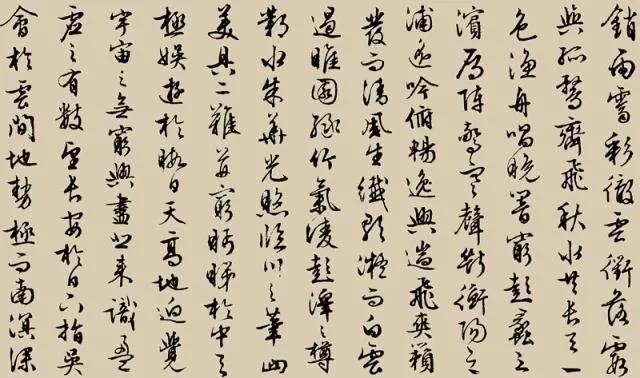 銷雨霽彩徹雲衢落霞
與孤鶩齊飛秋水共長天一
色漁舟唱晚響窮彭蠡之
濱雁陣驚寒聲斷衡陽之
浦遙吟俯暢逸興遄飛爽籟
發而清風生纖歌凝而白雲
遏睢園綠竹氣凌彭澤之樽
鄴水朱華光照臨川之筆四
美具二難并窮眄睇於中天
極娛遊於暇日天高地迥覺
宇宙之無窮興盡悲來識盈
虛之有數望長安於日下指吳
會於雲間地勢極而南溟深